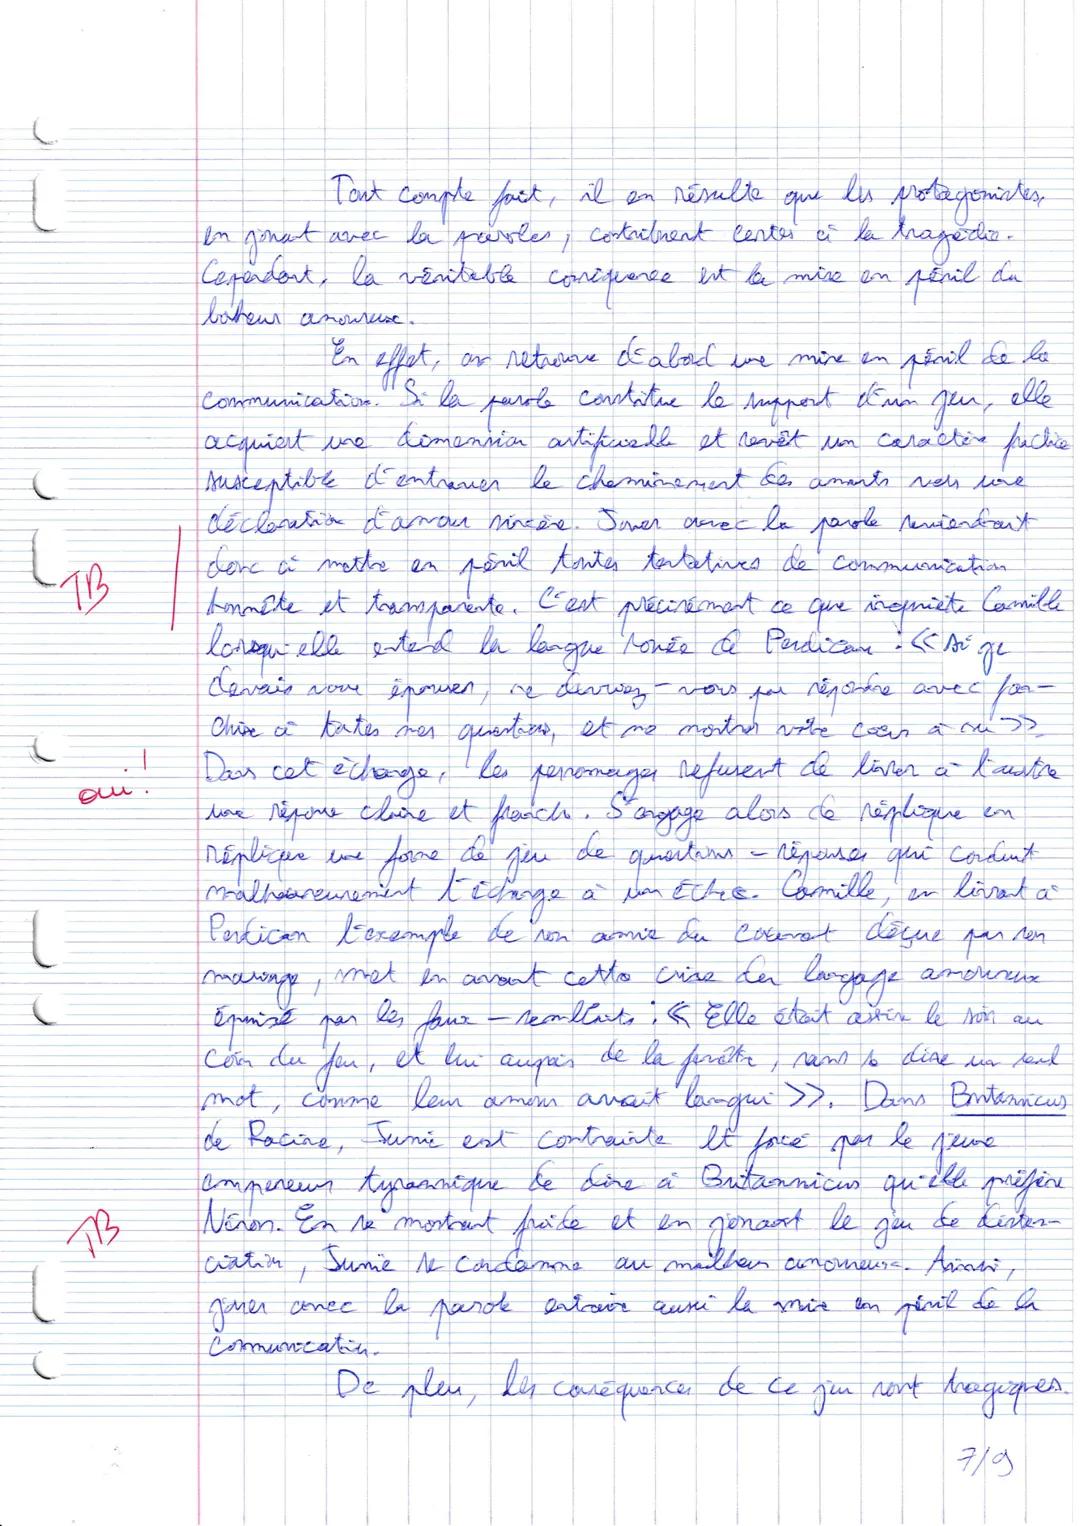 Tout compte fait, il en résulte que les protagonistes,
en jouant avec la paroles, contribuent certes à la tragédie.
Cependant, la véritable conséquence est la mise en péril du
bonheur amoureux.
En effet, on retrouve d'abord une mise en péril de la
communication. Si la parole constitue le support d'un jeu, elle
acquiert une dimension artificielle et revêt un caractère factice
susceptible d'entraver le cheminement des amants vers une
déclaration d'amour sincère. Jouer avec la parole reviendrait
donc à mettre en péril toutes tentatives de communication
TB
honnête et transparente. C'est précisément ce que inquiète Camille
lorsqu'elle entend la langue rouée de Perdican : << Si je
devais vous épouser, ne devriez-vous pas répondre avec fran-
chise à toutes mes questions, et me montrer votre coeur à nu >>.
Dans cet échange, les personnages refusent de livrer à l'autre
oui !
une réponse claire et franche. S'engage alors de réplique en
réplique une forme de jeu de questions - réponses qui conduit
malheureusement l'échange à un échec. Camille, en livrant à
Perdican l'exemple de son amie du couvent déçue par son
mariage, met en avant cette crise du langage amoureux
épuisé par les faux-semblants : << Elle était assise le soir au
coin du feu, et lui auprès de la fenêtre, sans se dire un seul
mot, comme leur amour avait langui >>. Dans Britannicus
de Racine, Junie est contrainte et forcé par le jeune
empereur tyrannique de dire à Britannicus qu'elle préfère
Néron. En se montrant froide et en jouant le jeu de distan-
TB
ciation, Junie se condamne au malheur amoureux. Ainsi,
jouer avec la parole entraine aussi la mise en péril de la
communication.
De plus, les conséquences de ce jeu sont tragiques.
7/9